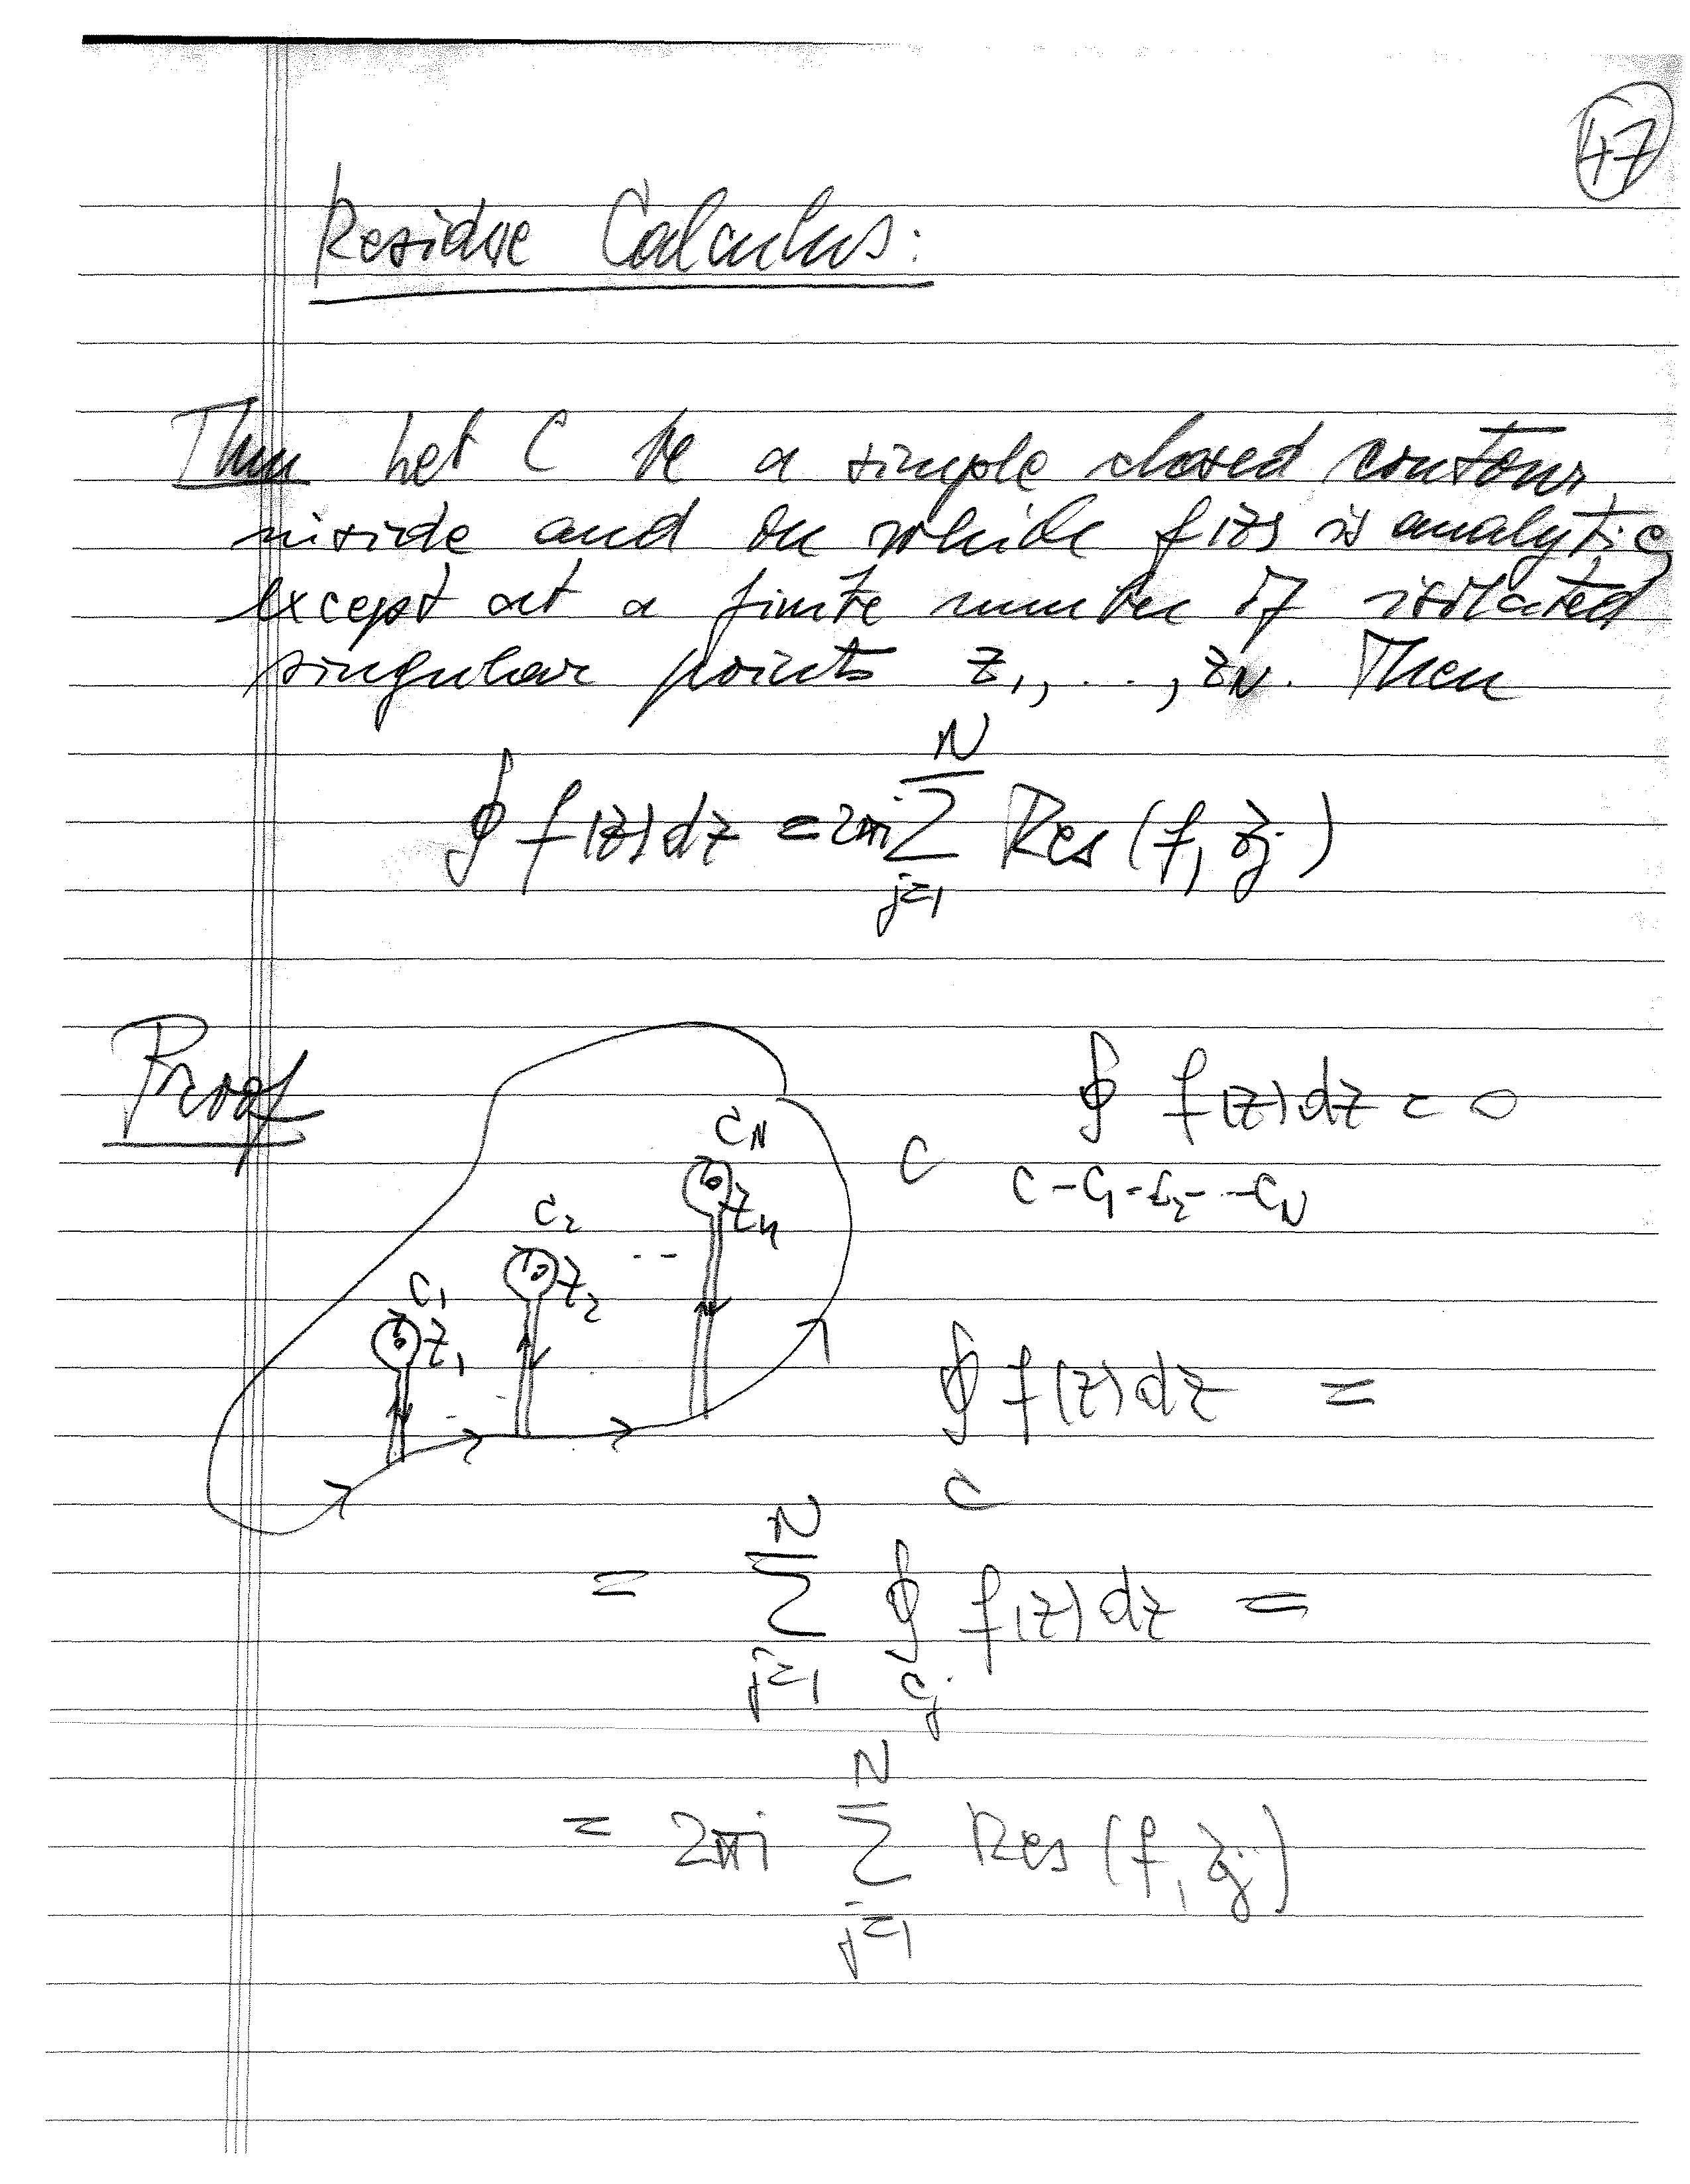 47
Residue Calculus:
Thm Let C be a simple closed contour
inside and on which f(z) is analytic,
except at a finite number of isolated
singular points z₁, ..., z_N. Then
∮ f(z)dz = 2πi ∑_{j=1}^{N} Res(f, z_j)
Proof
C_N
C
z_N
C₂
z₂
--
C₁
z₁
∮_{C-C₁-C₂-...-C_N} f(z)dz = 0
∮_C f(z)dz =
= ∑_{j=1}^{N} ∮_{C_j} f(z)dz =
= 2πi ∑_{j=1}^{N} Res(f, z_j)